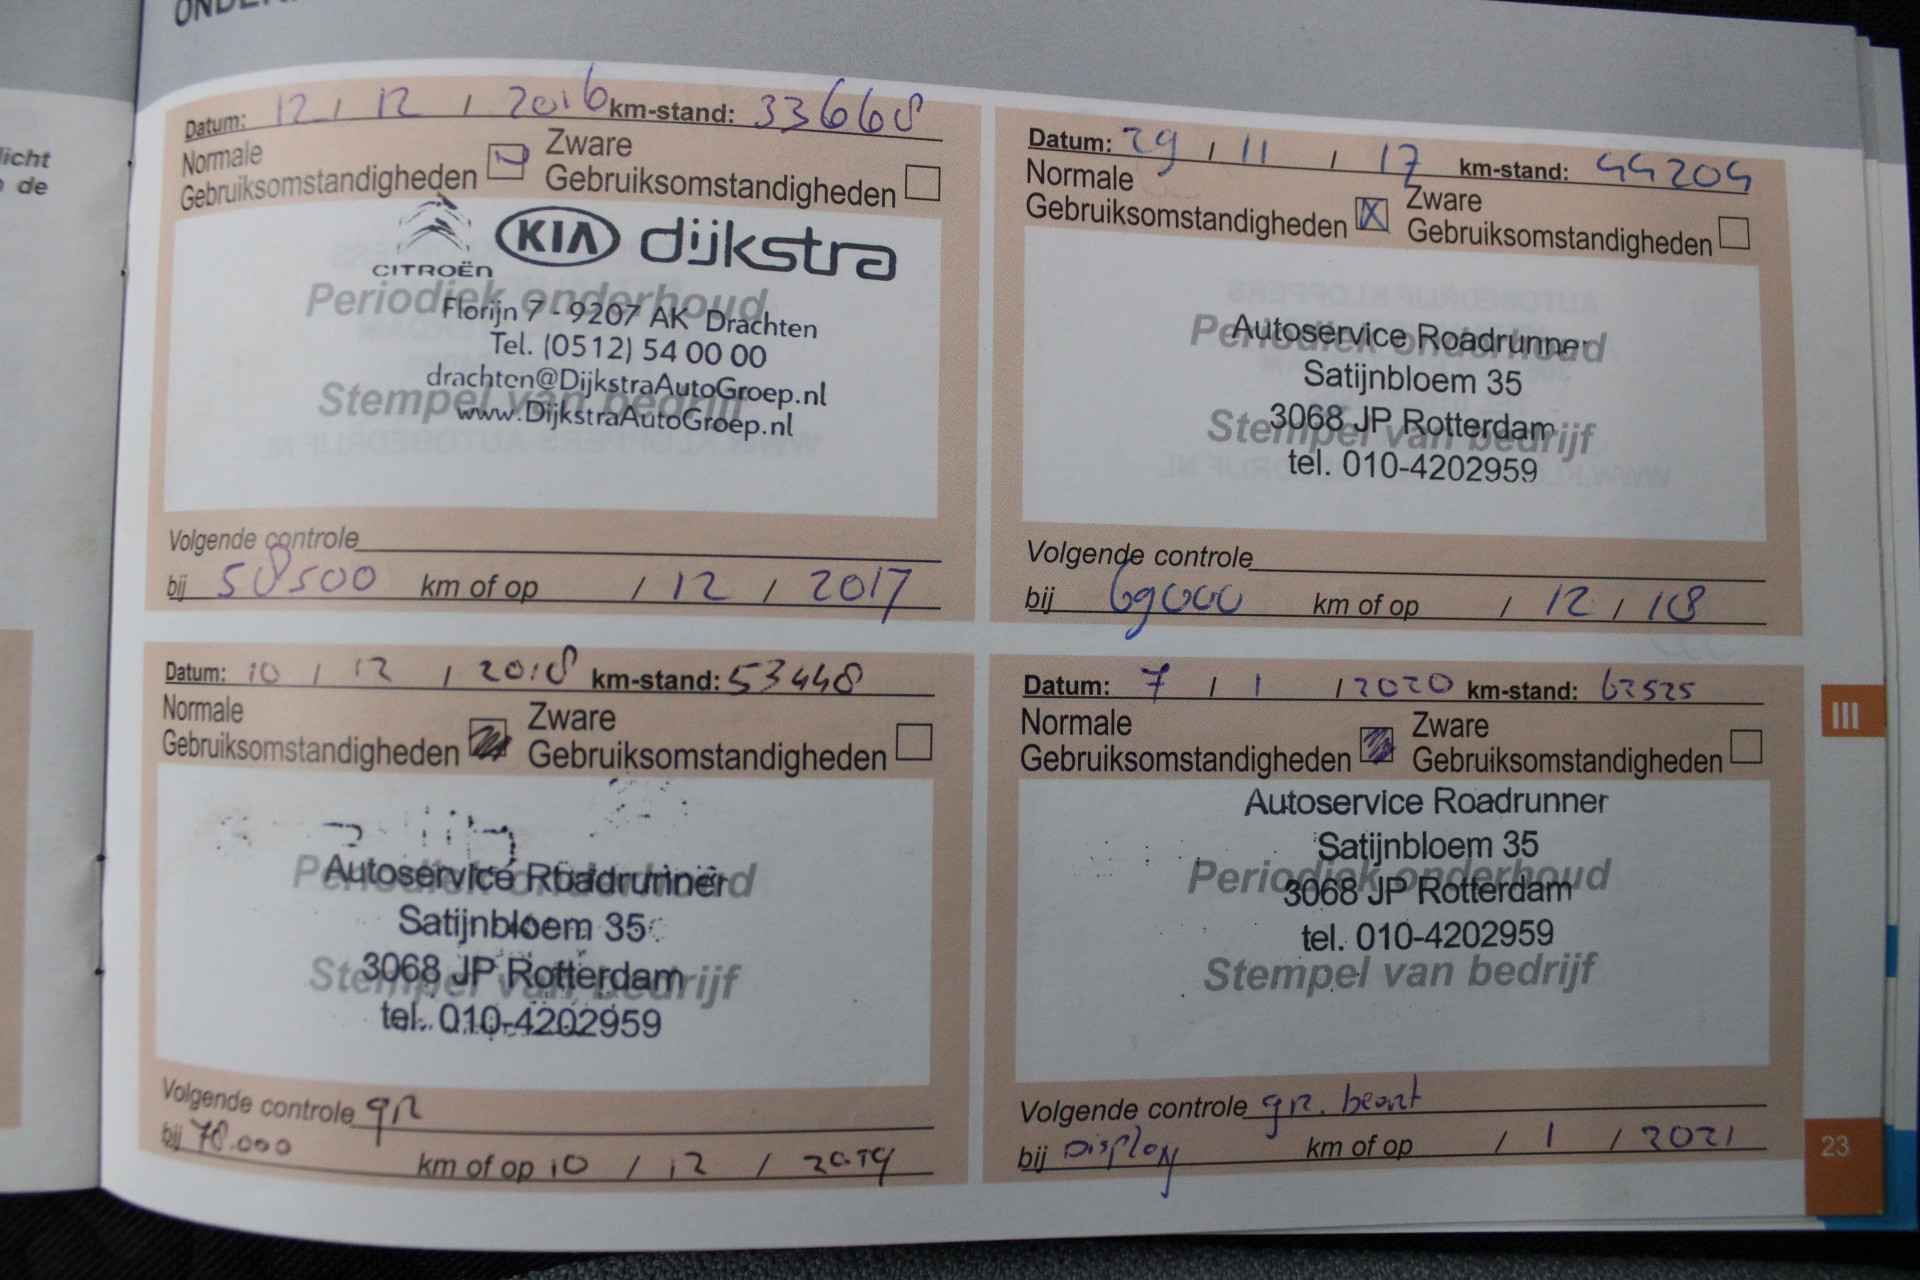 licht
de
Datum: 12 / 12 / 2016 km-stand: 33668
Normale
Gebruiksomstandigheden
Zware
Gebruiksomstandigheden
CITROËN
KIA dijkstra
Periodiek onderhoud
Florijn 7 - 9207 AK Drachten
Tel. (0512) 54 00 00
drachten@DijkstraAutoGroep.nl
Stempel van bedrijf
www.DijkstraAutoGroep.nl
Volgende controle
bij 58500 km of op / 12 / 2017
Datum: 29 / 11 / 17 km-stand: 44204
Normale
Gebruiksomstandigheden X
Zware
Gebruiksomstandigheden
Autoservice Roadrunner
Periodiek onderhoud
Satijnbloem 35
3068 JP Rotterdam
Stempel van bedrijf
tel. 010-4202959
Volgende controle
bij 69000 km of op / 12 / 18
Datum: 10 / 12 / 2018 km-stand: 53448
Normale
Gebruiksomstandigheden
Zware
Gebruiksomstandigheden
Periodiek onderhoud
Autoservice Roadrunner
Satijnbloem 35
3068 JP Rotterdam
Stempel van bedrijf
tel. 010-4202959
Volgende controle gr
bij 78.000 km of op 10 / 12 / 2019
Datum: 7 / 1 / 2020 km-stand: 62525
Normale
Gebruiksomstandigheden
Zware
Gebruiksomstandigheden
Autoservice Roadrunner
Satijnbloem 35
Periodiek onderhoud
3068 JP Rotterdam
tel. 010-4202959
Stempel van bedrijf
Volgende controle gr. beurt
bij Display km of op / 1 / 2021
III
23